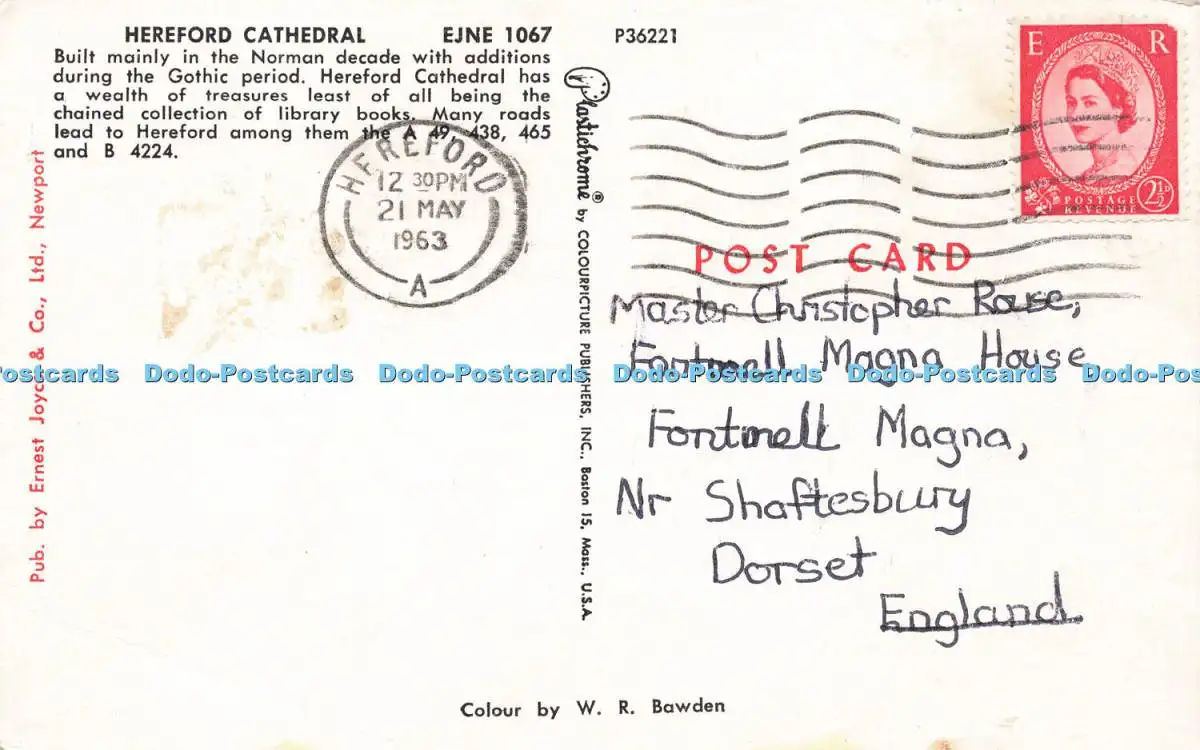 HEREFORD CATHEDRAL EJNE 1067
Built mainly in the Norman decade with additions
during the Gothic period. Hereford Cathedral has
a wealth of treasures least of all being the
chained collection of library books. Many roads
lead to Hereford among them the A 49, 438, 465
and B 4224.
Pub. by Ernest Joyce & Co., Ltd., Newport
HEREFORD
12 30PM
21 MAY
1963
A
Plastichrome ® by COLOURPICTURE PUBLISHERS, INC., Boston 15, Mass., U.S.A.
P36221
E R
POSTAGE
REVENUE
2½D
POST CARD
Master Christopher Rouse,
Fontmell Magna House
Fontmell Magna,
Nr Shaftesbury
Dorset
England
Dodo-Postcards Dodo-Postcards Dodo-Postcards Dodo-Postcards Dodo-Postcards Dodo-Postcards
Colour by W. R. Bawden